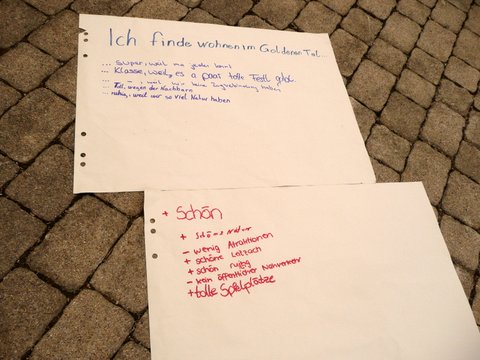 Ich finde wohnen im Goldenen Tal...
... super, weil ma jeden kennt
... Klasse, weil es a paar tolle Festl gibt.
... , weil wir keine Zuganbindung haben
... Toll, wegen der Nachbarn
ruhig, weil wir so viel Natur haben
+ Schön
+ Schöne Natur
- wenig Atraktionen
+ schöne Leitzach
+ schön ruhig
- kein öffentlicher Nahverkehr
+ tolle Spielplätze